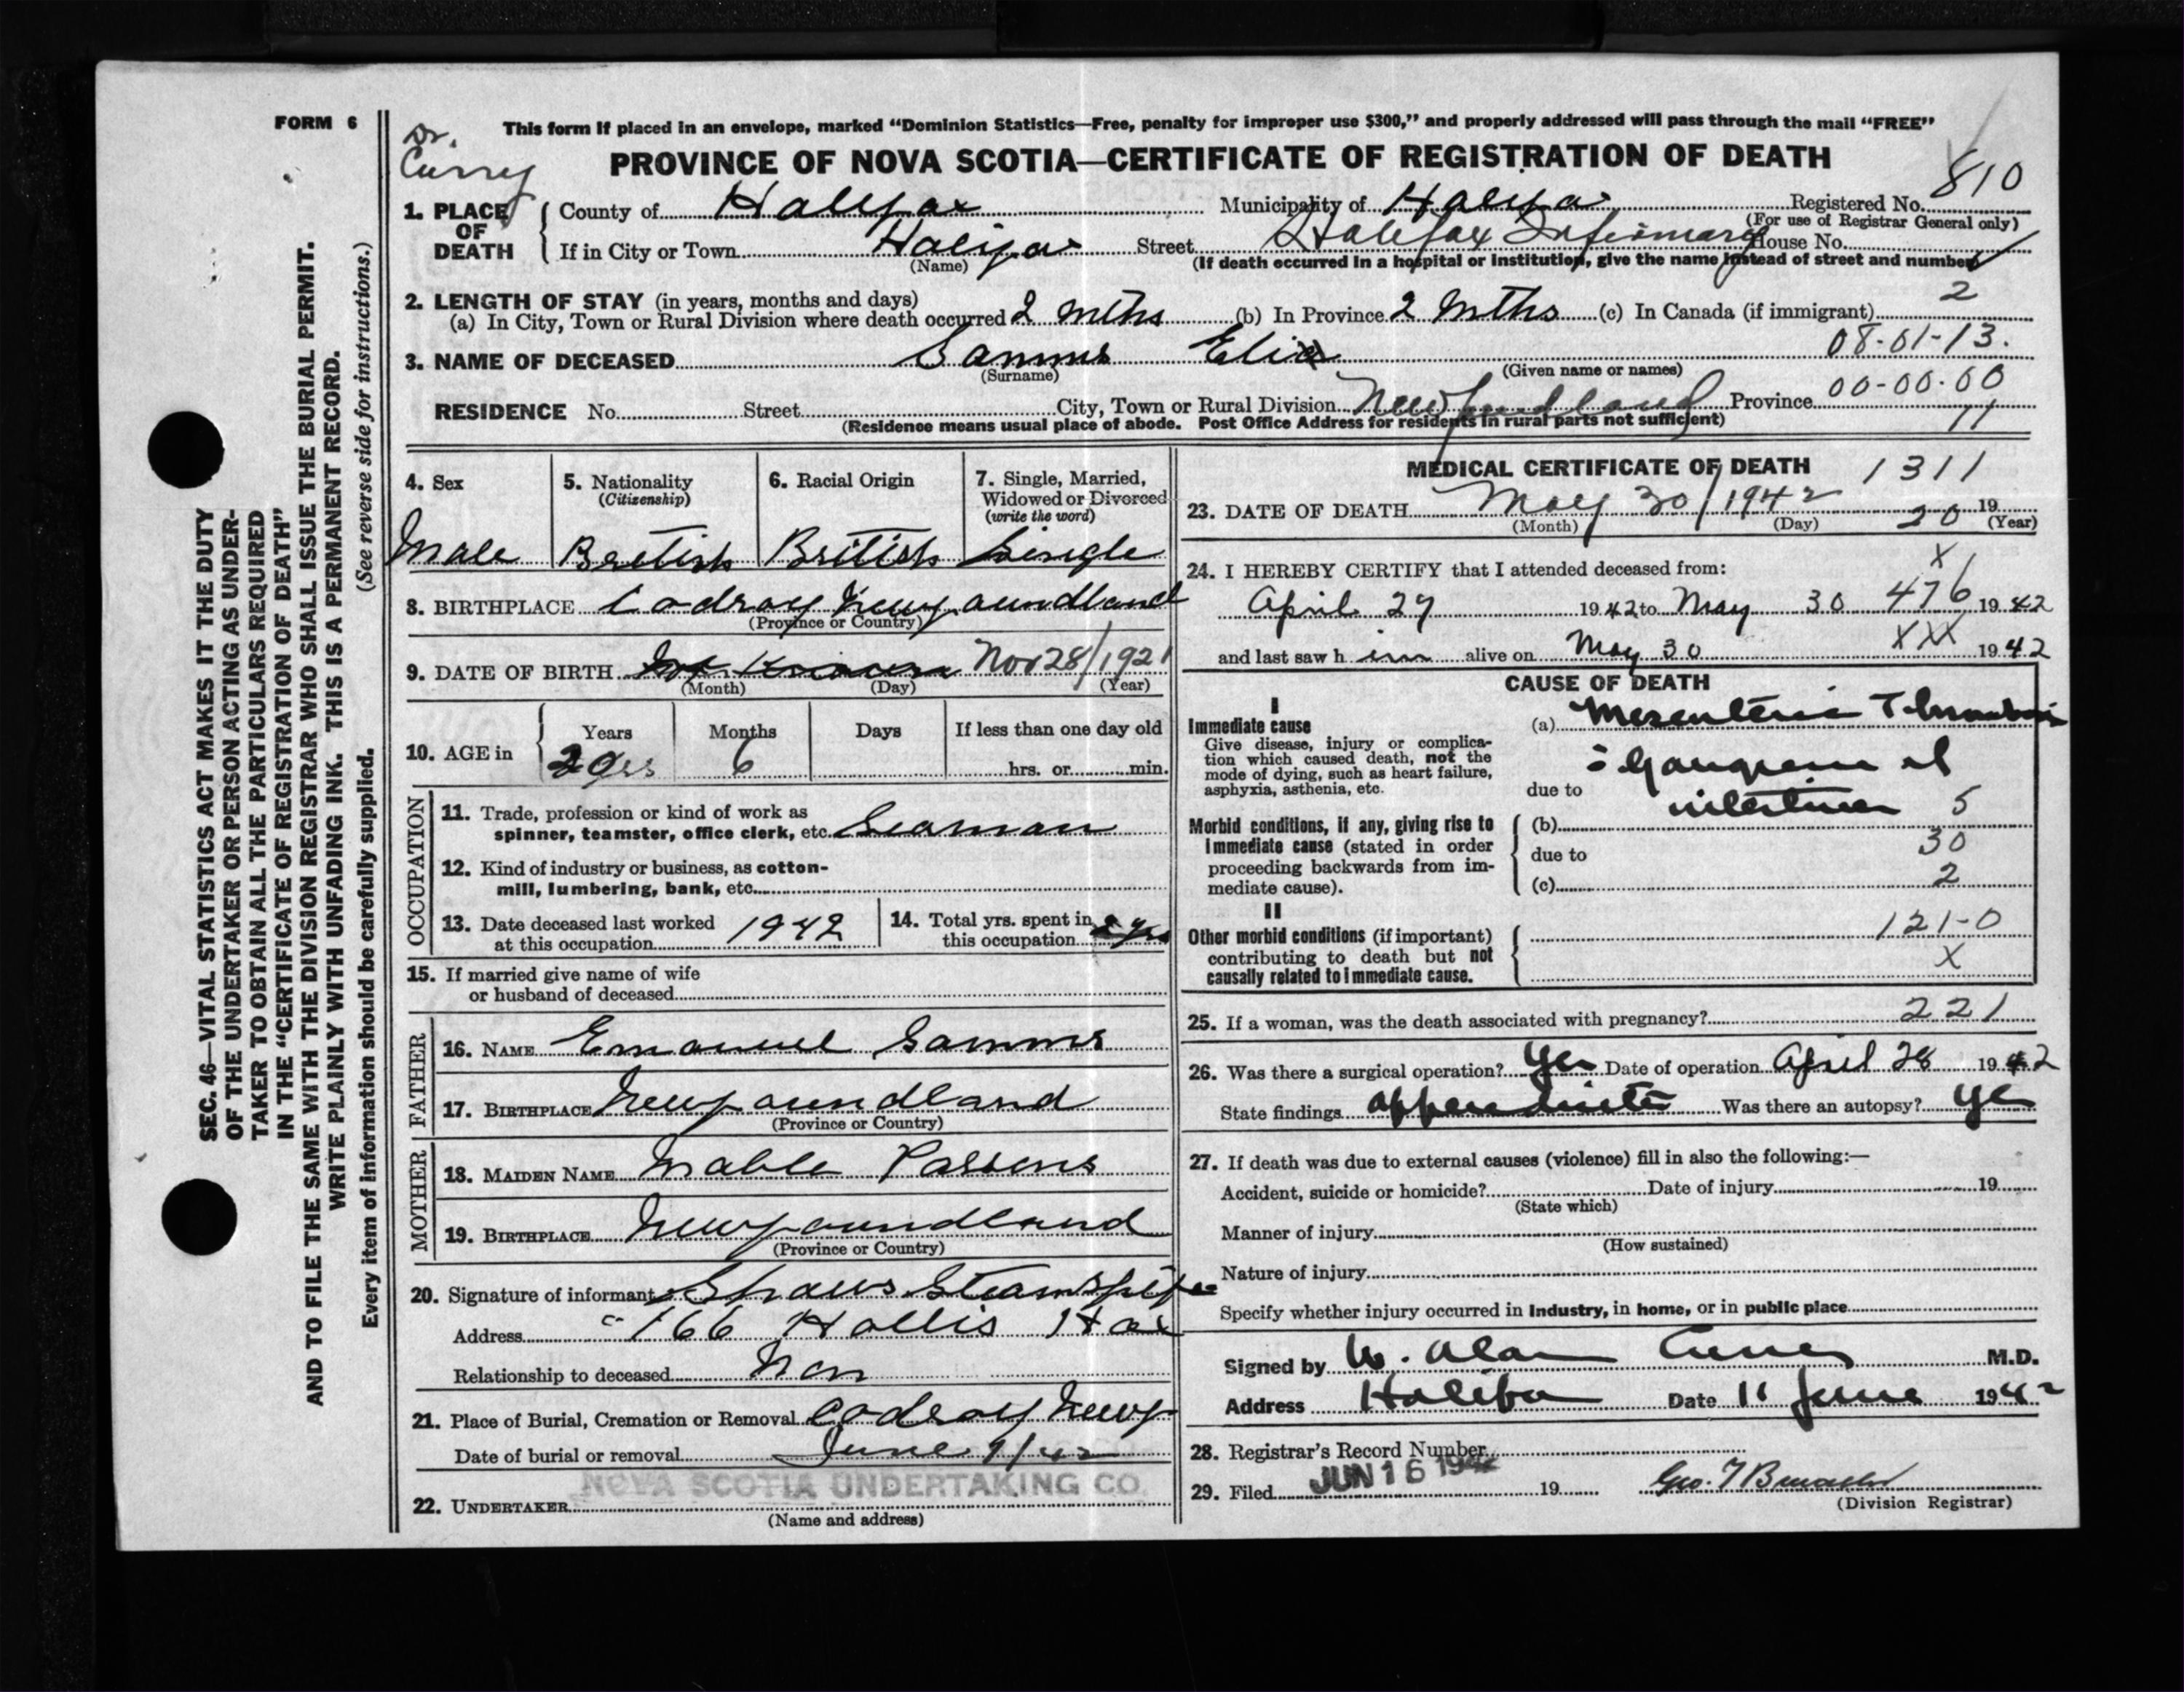 FORM 6
SEC. 46—VITAL STATISTICS ACT MAKES IT THE DUTY
OF THE UNDERTAKER OR PERSON ACTING AS UNDER-
TAKER TO OBTAIN ALL THE PARTICULARS REQUIRED
IN THE "CERTIFICATE OF REGISTRATION OF DEATH"
AND TO FILE THE SAME WITH THE DIVISION REGISTRAR WHO SHALL ISSUE THE BURIAL PERMIT.
WRITE PLAINLY WITH UNFADING INK. THIS IS A PERMANENT RECORD.
Every item of information should be carefully supplied. (See reverse side for instructions.)
Dr.
Curry
This form if placed in an envelope, marked "Dominion Statistics—Free, penalty for improper use $300," and properly addressed will pass through the mail "FREE"
PROVINCE OF NOVA SCOTIA—CERTIFICATE OF REGISTRATION OF DEATH
810
1. PLACE OF DEATH
County of Halifax Municipality of Halifax Registered No.
(For use of Registrar General only)
If in City or Town Halifax Street Halifax Infirmary House No.
(Name) (If death occurred in a hospital or institution, give the name instead of street and number)
2. LENGTH OF STAY (in years, months and days) 2
(a) In City, Town or Rural Division where death occurred 2 mths (b) In Province 2 mths (c) In Canada (if immigrant)
08-01-13.
3. NAME OF DECEASED Samms Eli
(Surname) (Given name or names)
00-00-00
RESIDENCE No. Street City, Town or Rural Division Newfoundland Province
(Residence means usual place of abode. Post Office Address for residents in rural parts not sufficient) 11
4. Sex Male
5. Nationality (Citizenship) British
6. Racial Origin British
7. Single, Married, Widowed or Divorced (write the word) Single
8. BIRTHPLACE Codroy Newfoundland
(Province or Country)
9. DATE OF BIRTH Not Known Nov 28/1921
(Month) (Day) (Year)
10. AGE in Years Months Days If less than one day old
20 yrs 6 hrs. or min.
OCCUPATION
11. Trade, profession or kind of work as
spinner, teamster, office clerk, etc. Seaman
12. Kind of industry or business, as cotton-
mill, lumbering, bank, etc.
13. Date deceased last worked
at this occupation 1942
14. Total yrs. spent in
this occupation 2 yrs
15. If married give name of wife
or husband of deceased
FATHER
16. NAME Emanuel Samms
17. BIRTHPLACE Newfoundland
(Province or Country)
MOTHER
18. MAIDEN NAME Mable Parsons
19. BIRTHPLACE Newfoundland
(Province or Country)
20. Signature of informant Shaws Steamship
Address 166 Hollis Hax
Relationship to deceased Non
21. Place of Burial, Cremation or Removal Codroy Newf
Date of burial or removal June 1/42
NOVA SCOTIA UNDERTAKING CO.
22. UNDERTAKER
(Name and address)
MEDICAL CERTIFICATE OF DEATH 1311
23. DATE OF DEATH May 30/1942 19
(Month) (Day) 20 (Year)
24. I HEREBY CERTIFY that I attended deceased from: X
April 27 1942 to May 30 476 1942
and last saw him alive on May 30 XXX 1942
CAUSE OF DEATH
I
Immediate cause
Give disease, injury or complica-
tion which caused death, not the
mode of dying, such as heart failure,
asphyxia, asthenia, etc.
(a) Mesenteric Thrombosis
Gangrene of
due to intestines 5
Morbid conditions, if any, giving rise to
immediate cause (stated in order
proceeding backwards from im-
mediate cause).
(b)
due to 30
(c) 2
II
Other morbid conditions (if important)
contributing to death but not
causally related to immediate cause.
121-0
X
25. If a woman, was the death associated with pregnancy? 221
26. Was there a surgical operation? Yes Date of operation April 28 1942
State findings appendicitis Was there an autopsy? Yes
27. If death was due to external causes (violence) fill in also the following:—
Accident, suicide or homicide? Date of injury 19
(State which)
Manner of injury
(How sustained)
Nature of injury
Specify whether injury occurred in Industry, in home, or in public place
Signed by W. Alan Curry M.D.
Address Halifax Date 11 June 1942
28. Registrar's Record Number
29. Filed JUN 16 1942 19
(Division Registrar)